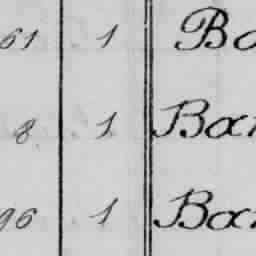 61 1 Bo
8 1 Bar
96 1 Bar